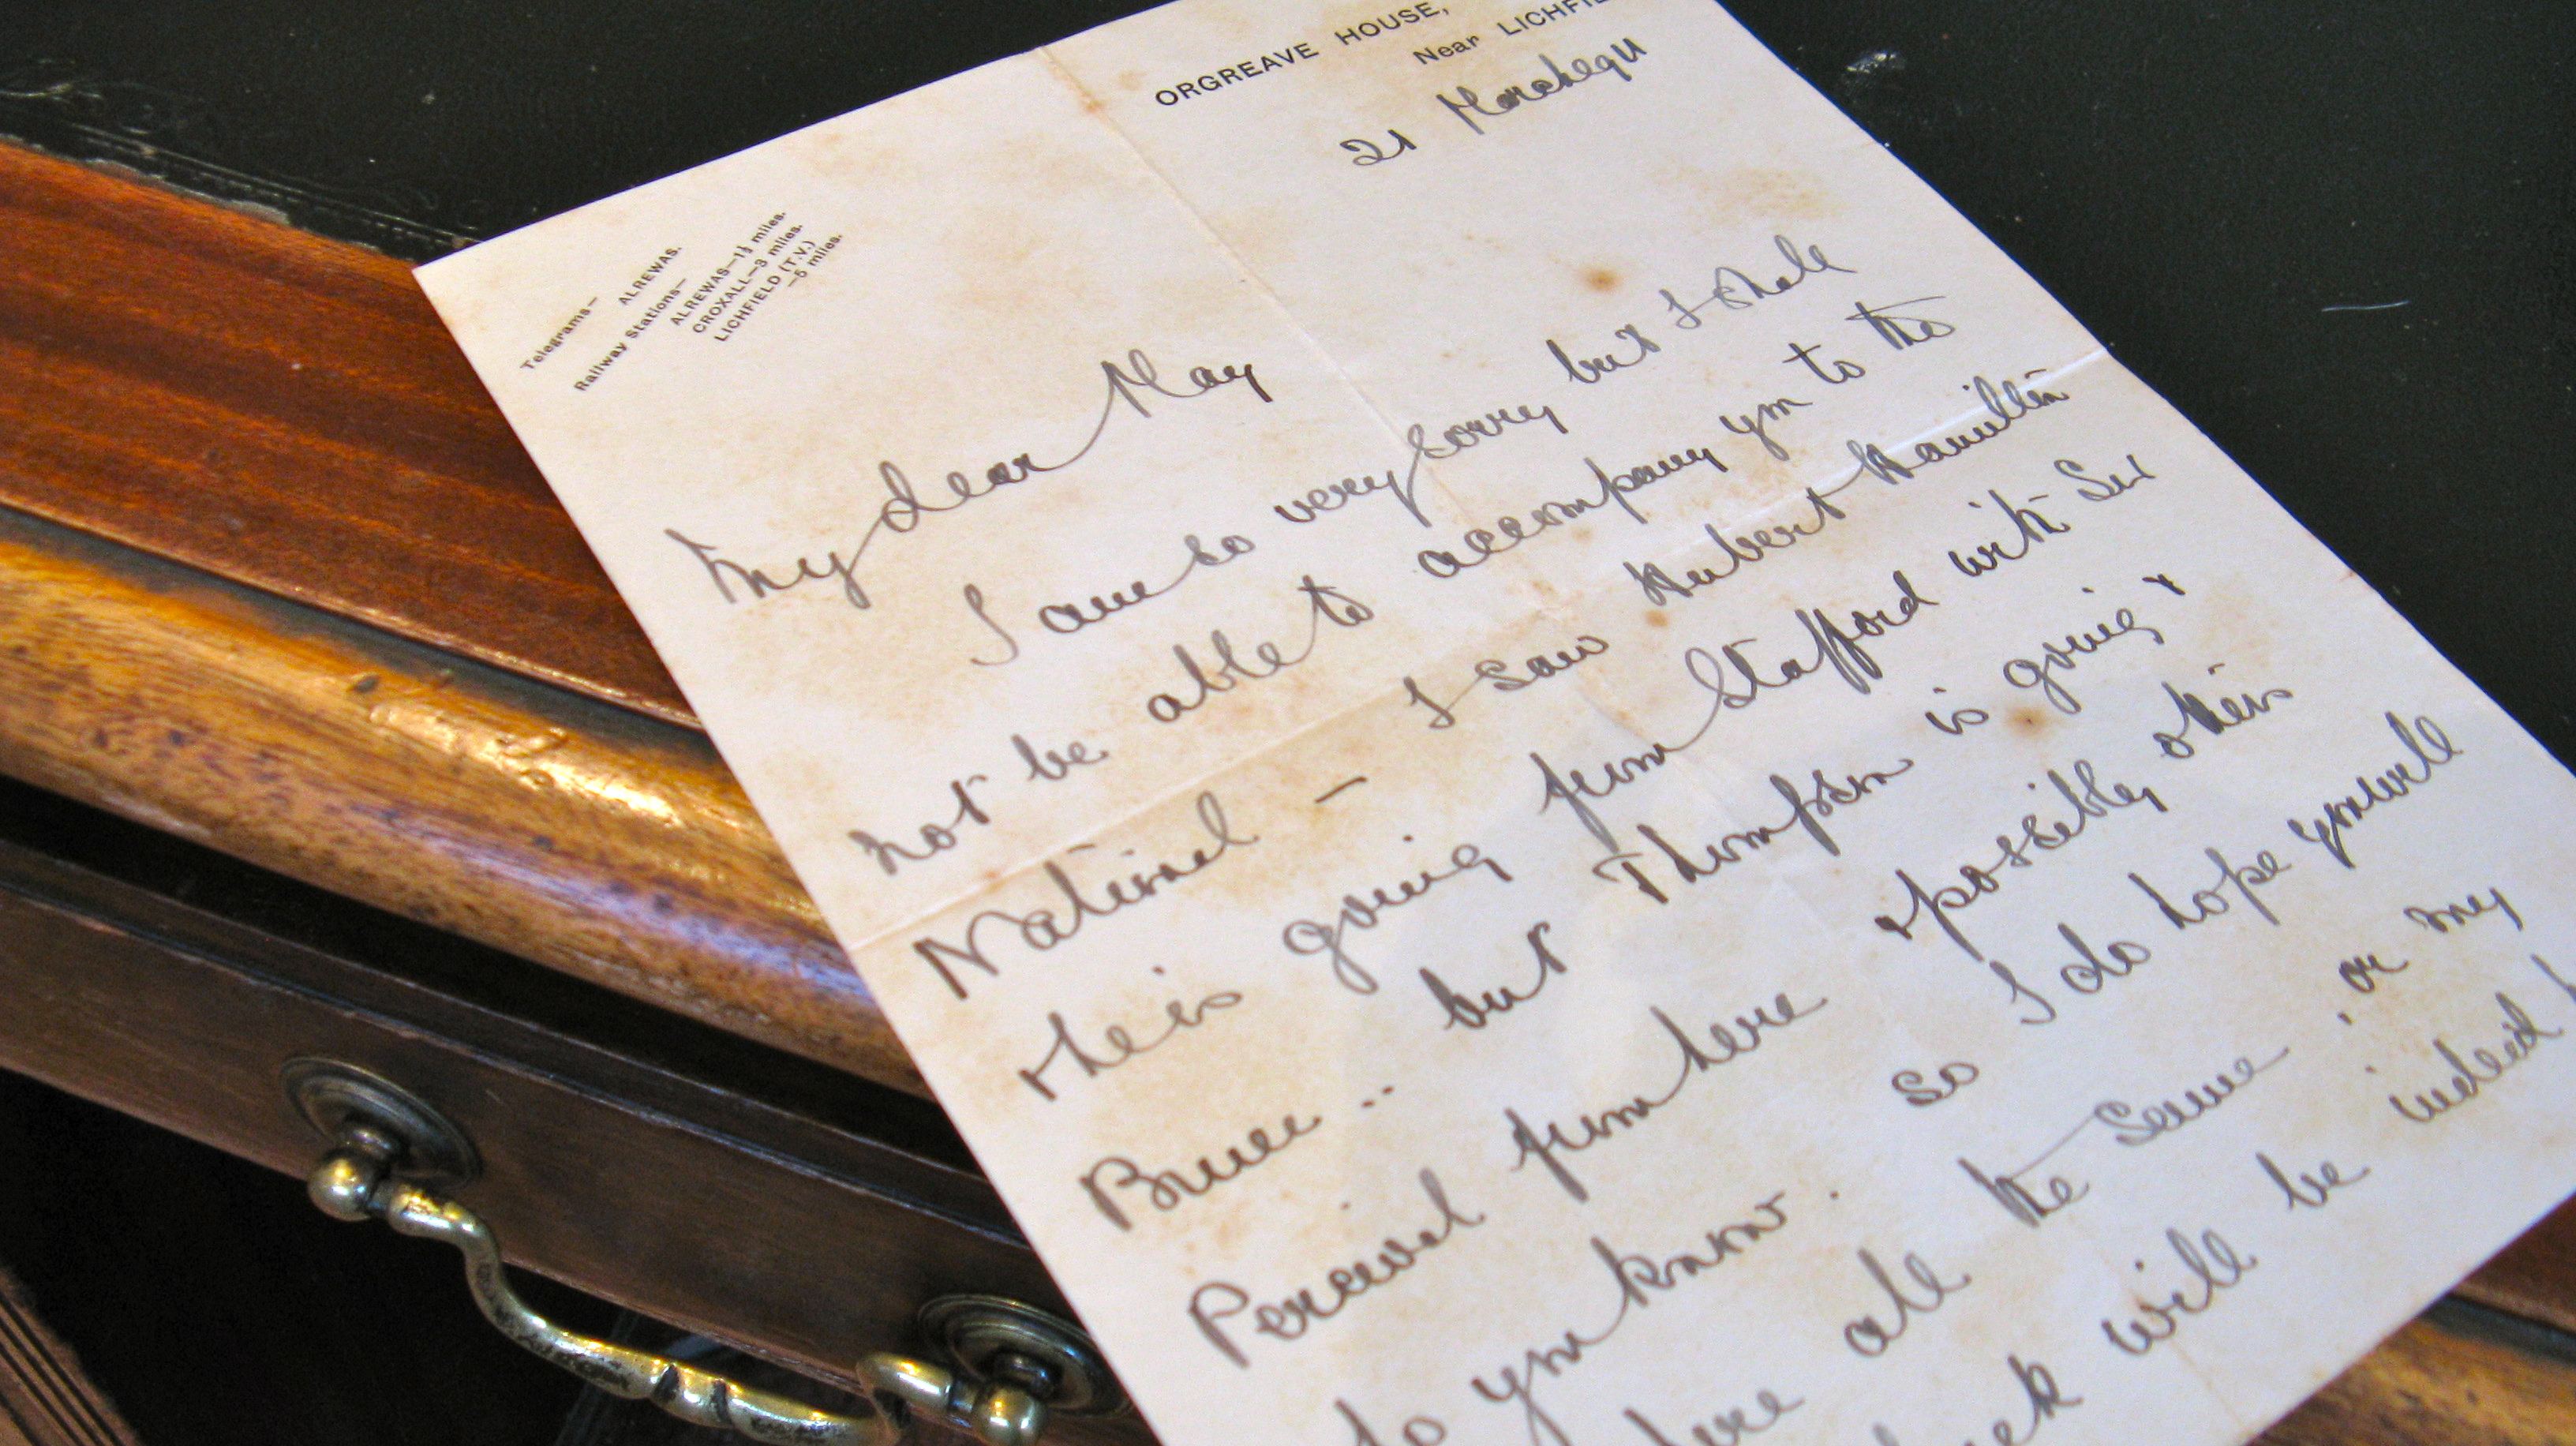 ORGREAVE HOUSE,
Near LICHFIE
21 March
Telegrams—
ALREWAS.
Railway Stations—
ALREWAS—1½ miles.
CROXALL—3 miles.
LICHFIELD (T.V.)
—5 miles.
My dear May
I am so very sorry but I shall
not be able to accompany you to the
National — I saw Hubert Hamilton
& he is going from Stafford with Sir
Bruce .. but Thompson is going &
Percival from here & possibly others
to you know. so I do hope you will
all the same . or my
will be indeed